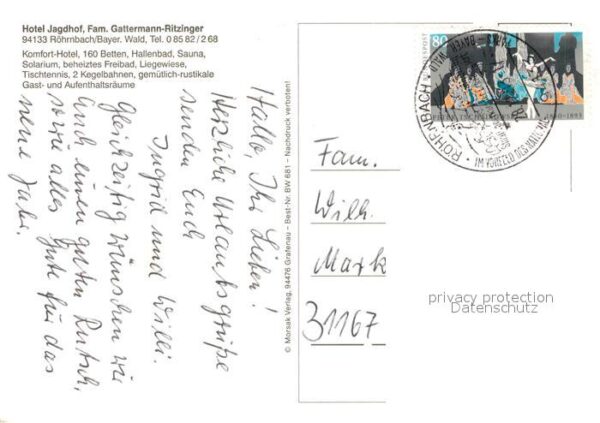 Hotel Jagdhof, Fam. Gattermann-Ritzinger
94133 Röhrnbach/Bayer. Wald, Tel. 0 85 82 / 2 68
Komfort-Hotel, 160 Betten, Hallenbad, Sauna,
Solarium, beheiztes Freibad, Liegewiese,
Tischtennis, 2 Kegelbahnen, gemütlich-rustikale
Gast- und Aufenthaltsräume
Hallo, Ihr Lieben!
Herzliche Urlaubsgrüße
senden Euch
Ingrid und Willi.
Gleichzeitig wünschen wir
Euch einen guten Rutsch,
sowie alles Gute für das
neue Jahr.
© Morsak Verlag, 94476 Grafenau – Best-Nr. BW 681 – Nachdruck verboten!
80
BUNDESPOST
1893
RÖHRNBACH
BAYER. WALD
IM VORFELD DES NATIONAL
Fam.
Wilh.
Mark
31167
privacy protection
Datenschutz